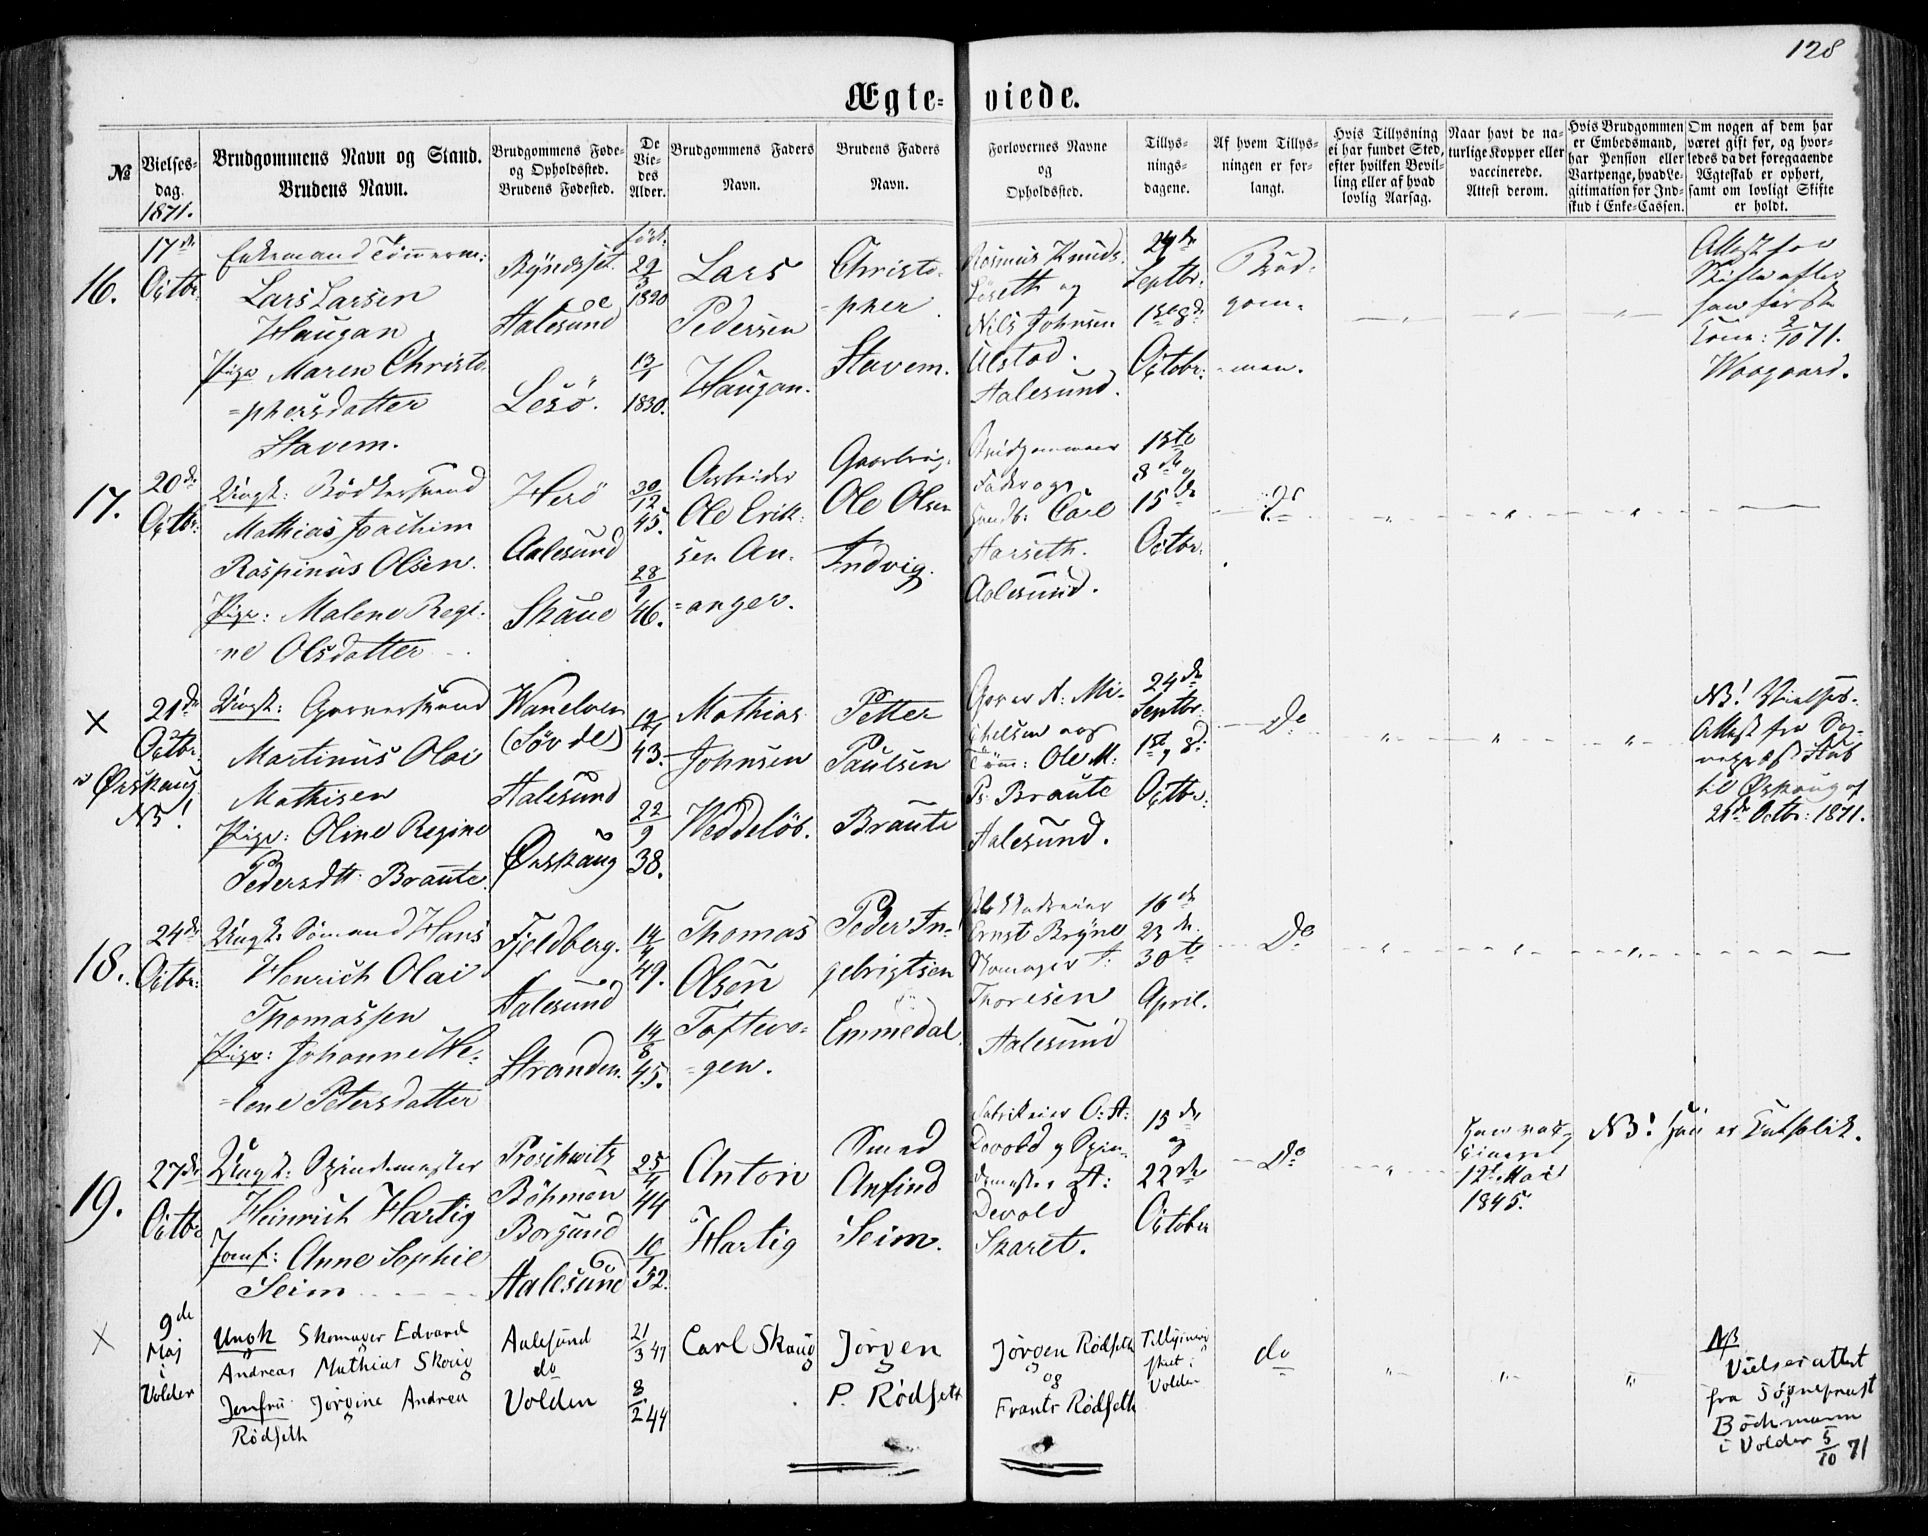 128
Ægteviede.
№
Vielsesdag.
1871.
Brudgommens Navn og Stand.
Brudens Navn.
Brudgommens Fødeog Opholdssted.
Brudens Fødested.
De Viedes Alder.
Brudgommens Faders
Navn.
Brudens Faders
Navn.
Forlovernes Navne
og
Opholdssted.
Tillysningsdagene.
Af hvem Tillysningen er forlangt.
Hvis Tillysning
ei har fundet Sted,
efter hvilken Bevilling eller af hvad
lovlig Aarsag.
Naar havt de naturlige Kopper eller
vaccinerede.
Attest derom.
Hvis Brudgommen
er Embedsmand,
har Pension eller
Vartpenge, hvad Legitimation for Indskud i Enke-Cassen.
Om nogen af dem har
været gift før, og hvorledes da det foregaaende
Ægteskab er ophørt,
samt om lovligt Skifte
er holdt.
16.
17de
Octbr.
Enkemand Tømmerm:
Lars Larsen
Haugan
Pige Maren Christo
=phersdatter
Stavem.
Aalesund
Lesö.
født
29/3
1820
13/1
1830.
Lars
Pedersen
Haugan.
Christo-
-pher
Stavem.
Rasmus Knuds.
og
Nils Johnsen
Ulstad.
Aalesund.
24de
Septbr.
1ste 8de
Octobr.
Brud-
gom-
-men.
Attest for
Skifte efter
hans første
Kone: 2/10 71.
Waagaard.
17.
20de
Octbr.
Ungk: Bødkersvend
Mathias Joachim
Raspinus Olsen.
Pige: Malene Regi-
ne Olsdatter
Herö
Aalesund
Skaue
30/12
45.
28/9
46.
Arbeider
Ole Erik-
sen An-
=anger.
Ole Olsen
Indvig.
Brudgommens
Fader og
Handb: Carl
Harseth.
Aalesund.
1ste
8de og
15de
Octbr.
Do
×
21de
Octbr.
i Ørskoug
NB!
Ungk: Garversvend
Martinus Olai
Mathisen
Pige: Oline Regine
Pedersdtt: Braute.
Vanelven
(Søvde)
Aalesund
Ørskoug
43.
22/9
38.
Mathias
Johnsen
Weddeløb.
Petter
Paulsen
Braute
Garver A: Mi-
chelsen og
Tøm: Ole M:
Ps: Braute
Aalesund.
24de
Septbr.
1ste, 8de
Octbr.
Do
NB! Vielses-
Attest fra Sog-
nepræst Stub
til Ørskoug af
21de Octbr: 1871.
18.
24de
Octbr:
Ungk: Sømand Hans
Henrich Olai
Thomassen
Pige: Johanne He-
=lene Petersdatter
Fjeldberg.
Aalesund
Stranden.
49.
14/8
45.
Thomas
Olsen
Toftevo-
=gen.
Peder In-
gebrigtsen
Emmedal.
Ernst Bryne
Skomager A:
Thoresen
Aalesund
16de
23de.
30te
April.
Do
19.
27de
Octbr
Ungk: Spindemester
Heinrich Hartig
Jomf: Anne Sophie
Seim
Proschwitz
Böhmen
Borgund
Aalesund
25/4
44
10/1
52.
Anton
Hartig
Smed
Anfind
Seim.
Fabrikeier O: A:
Devold og Spin-
demester A:
Devold
Skaret.
15de
og
22de
October
Do
Han vac-
cineret
12te Mai
1845.
NB! Han er Katholik.
×
9de
Maj
i
Volden
Ungk Skomager Edvard
Andreas Mathias Skoug
Jomfru Jørgine Andrea
Rødseth
Aalesund
do
Volden
21/3 47
8/2 44
Carl Skoug
Jørgen
P. Rødseth
Jørgen Rødseth
og
Frants Rødseth
Tillysning
skeet i
Volden
do
NB
Vielsesattest
fra Sogneprest
Böchmann
i Volden 5/10 71